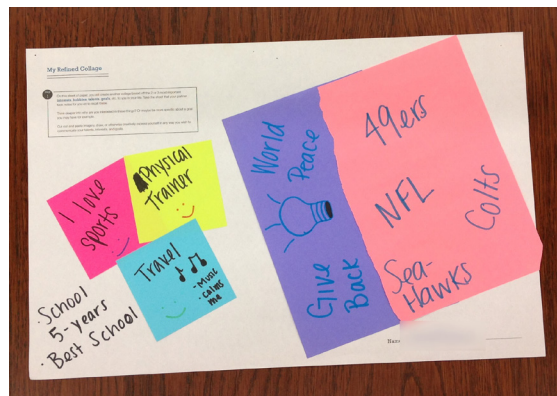 My Refined Collage
I love
sports
Physical
Trainer
Travel
- Music
calms
me
• School
5-years
• Best School
World
Peace
Give
Back
49ers
NFL
Colts
Sea-
Hawks